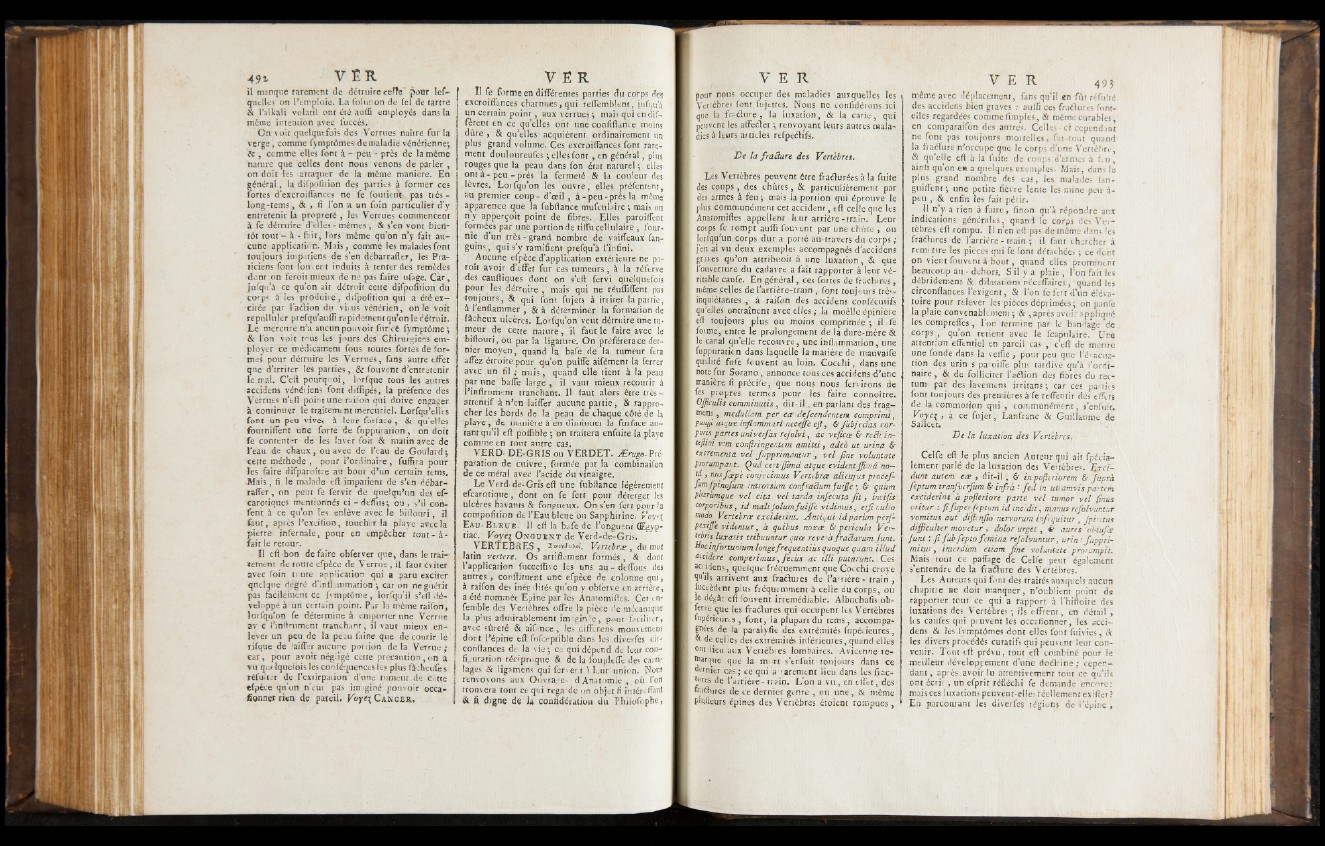 492 VER
il manque rarement de détruire celle pour lesquelles
on l'emploie. La solution de sel de tartre
& l'alkali volatil ont été aussi employés dans la
même intention avec succès.
On voit quelquefois des Verrues naître sur la
verge, comme symptômes de maladie vénérienne;
&, comme elles sont à-peu-près de la même
nature que celles dont nous venons de parler,
on doit les attaquer de la même manière. En
général, la disposition des parties à former ces
sortes d'excroissances ne se soutient pas très-
long-tems, &, si l'on a un soin particulier d'y
entretenir la propreté, les Verrues commencent
à se détruire d'elles-mêmes, & s'en vont bien-
tôt tout-à-fait, lors même qu'on n'y fait au-
cune application. Mais, comme les malades sont
toujours impatiens de s'en débarrasser, les Pra-
ticiens sont souvent induits à tenter des remèdes
dont on feroit mieux de ne pas faire usage. Car,
jusqu'à ce qu'on ait détruit cette disposition du
corps à les produire, disposition qui a été ex-
citée par l'action du virus vénérien, on le voit
repulluler presqu'aussi rapidement qu'on le détruit.
Le mercure n'a aucun pouvoir sur ce symptôme;
& l'on voit tous les jours des Chirurgiens em-
ployer ce médicament sous toutes sortes de for-
mes pour détruire les Verrues, sans autre effet
que d'irriter les parties, & souvent d'entretenir
le mal. C'est pourquoi, lorsque tous les autres
accidens vénériens sont dissipés, la présence des
Verrues n'est point une raison qui doive engager
à continuer le traitement mercuriel. Lorsqu'elles
sont un peu vives à leur surface, & qu'elles
fournissent une sorte de suppuration, on doit
se contenter de les laver soir & matin avec de
l'eau de chaux, ou avec de l'eau de Goulard;
cette méthode, pour l'ordinaire, suffira pour
les faire disparoître au bout d'un certain tems.
Mais, si le malade est impatient de s'en débar-
rasser, on peut se servir de quelqu'un des es-
carotiques mentionnés ci-dessus; ou, s'il con-
sent à ce qu'on les enlève avec le bistouri, il
faut, après l'excision, toucher la playe avec la
pierre infernale, pour en empêcher tout-à-
fait le retour.
Il est bon de faire observer que, dans le trai-
tement de toute espèce de Verrue, il faut éviter
avec soin toute application qui a paru exciter
quelque dégré d'inflammation; car on ne guérit
pas facilement ce symptôme, lorsqu'il s'est dé-
veloppé à un certain point. Par la même raison,
lorsqu'on se détermine à emporter une Verrue
avec l'instrument tranchant, il vaut mieux en-
lever un peu de la peau saine que de courir le
risque de laisser aucune portion de la Verrue;
car, pour avoir négligé cette précaution, on a
vu quelquefois les conséquences les plus fâcheuses
résulter de l'extirpation d'une tumeur de cette
espèce qu'on n'eut pas imaginé pouvoir occa-
sionner rien de pareil. Voyez CANCER.
VER
Il se forme en différentes parties du corps des
excroissances charnues, qui ressemblent, jusqu'à
un certain point, aux verrues; mais qui en dif-
fèrent en ce qu'elles ont une consistance moins
dûre, & qu'elles acquièrent ordinairement un
plus grand volume. Ces excroissances sont rare-
ment douloureuses; elles sont, en général, plus
rouges que la peau dans son état naturel; elles
ont à-peu-près la fermeté & la couleur des
lèvres. Lorsqu'on les ouvre, elles présentent,
au premier coup-d'œil, à-peu-près la même
apparence que la substance musculaire; mais on
n'y apperçoit point de fibres. Elles paroissent
formées par une portion de tissu cellulaire, four-
nie d'un très-grand nombre de vaisseaux san-
guins, qui s'y ramifient presqu'à l'infini.
Aucune espèce d'application extérieure ne pa-
roît avoir d'effet sur ces tumeurs, à la réserve
des caustiques dont on s'est servi quelquefois
pour les détruire, mais qui ne réussissent pas
toujours, & qui sont sujets à irriter la partie,
à l'enflammer, & à déterminer la formation de
fâcheux ulcères. Lorsqu'on veut détruire une tu-
meur de cette nature, il faut le faire avec le
bistouri, ou par la ligature. On préférera ce der-
nier moyen, quand la base de la tumeur sera
assez étroite pour qu'on puisse aisément la serrer
avec un fil; mais, quand elle tient à la peau
par une basse large, il vaut mieux recourir à
l'instrument tranchant. Il faut alors être très-
attentif à n'en laisser aucune partie, & rappro-
cher les bords de la peau de chaque côté de la
playe, de manière à en diminuer la surface au-
tant qu'il est possible; on traitera ensuite la playe
comme en tout autre cas.
VERD-DE-GRIS ou VERDET. Ærugo. Pré-
paration de cuivre, formée par la combinaison
de ce métal avec l'acide du vinaigre.
Le Verd-de-Gris est une substance légèrement
escarotique, dont on se sert pour déterger les
ulcères bavants & fongueux. On s'en sert pour la
composition de l'Eau bleue ou Sapphirine. Voyez
EAU-BLEUE. Il est la base de l'onguent Œgyp-
tiac. Voyez ONGUENT de Verd-de-Gris.
VERTEBRES, Vertebræ, du mot
latin vertere. Os artistement formés, & dont
l'application successive les uns au-dessous des
autres, constituent une espèce de colonne qui,
à raison des inégalités qu'on y observe en arrière,
a été nommée Epine par les Anatomistes. Cet en-
semble des Vertèbres offre la pièce de mécanique
la plus admirablement imaginée, pour faciliter,
avec sûreté & aisance, les différens mouvemens
dont l'épine est susceptible dans les diverses cir-
constances de la vie; ce qui dépend de leur con-
figuration réciproque & de la souplesse des carti-
lages & ligamens qui servent à leur union. Nous
renvoyons aux Ouvrages d'Anatomie, où l'on
trouvera tout ce qui regarde un objet si intéressant
& si digne de la considération du Philosophe,
VER
pour nous occuper des maladies auxquelles les
Vertèbres sont sujettes. Nous ne considérons ici
que la fracture, la luxation, & la carie, qui
peuvent les affecter; renvoyant leurs autres mala-
dies à leurs articles respectifs.
De la fracture des Vertèbres.
Les Vertèbres peuvent être fracturées à la suite
des coups, des chûtes, & particulièrement par
des armes à feu; mais la portion qui éprouve le
plus communément cet accident, est celle que les
Anatomistes appellent leur arrière-train. Leur
corps se rompt aussi souvent par une chûte, ou
lorsqu'un corps dur a porté au-travers du corps;
j'en ai vu deux exemples accompagnés d'accidens
graves qu'on attribuoit à une luxation, & que
l'ouverture du cadavre a fait rapporter à leur vé-
ritable cause. En général, ces sortes de fractures,
même celles de l'arrière-train, sont toujours très-
inquiétantes, à raison des accidens consécutifs
qu'elles entraînent avec elles; la moëlle épinière
est toujours plus ou moins comprimée; il se
forme, entre le prolongement de la dure-mère &
le canal qu'elle recouvre, une inflammation, une
suppuration dans laquelle la matière de mauvaise
qualité fuse souvent au loin. Cocchi, dans une
note sur Sorano, annonce tous ces accidens d'une
manière si précise, que nous nous servirons de
ses propres termes pour les faire connoître.
Officulis comminutis, dit-il, en parlant des frag-
mens, medullam per ea descendentem comprimi,
pungi atque inflammari necesse est, & subjectas cor-
poris partes universas resolvi, ac vesicæ & recti in-
testini vim constringentem amitti, adeò ut urina &
extrementa vel supprimantur, vel sine voluntate
prorumpant. Quod certissimâ atque evidentissimâ no-
tâ, nos sæpè conjecimus Vertebræ alicujus proces-
sum spinosum introrsum confractum fuisse; & quum
plærumque vel cita vel tarda insecuta sit, incisis
corporibus, id mali solum fuisse vidimus, etsi nullo
modo Vertebræ exciderint. Antiqui id parùm pers-
pexisse videntur, à quibus noxæ & pericula Ver-
tebris luxatis tribuuntur quæ reverà fractarum sunt.
Hoc infortunium longè frequentius quoque quam illud
accidere comperimus, secùs ac illi putarunt. Ces
accidens, quelque fréquemment que Cocchi croye
qu'ils arrivent aux fractures de l'arrière-train,
succèdent plus fréquemment à celle du corps, où
le dégât est souvent irrémédiable. Albuchasis ob-
serve que les fractures qui occupent les Vertèbres
supérieures, sont, la plupart du tems, accompa-
gnées de la paralysie des extrémités supérieures,
& de celles des extrémités inférieures, quand elles
ont lieu aux Vertèbres lombaires. Avicenne re-
marque que la mort s'ensuit toujours dans ce
dernier cas; ce qui a rarement lieu dans les frac-
tures de l'arrière-train. L'on a vu, en effet, des
fractures de ce dernier genre, où une, & même
plusieurs épines des Vertèbres étoient rompues,
VER 493
même avec déplacement, sans qu'il en fût résulté
des accidens bien graves: aussi ces fractures sont-
elles regardées comme simples, & même curables,
en comparaison des autres. Celles-ci cependant
ne sont pas toujours mortelles, sur-tout quand
la fracture n'occupe que le corps d'une Vertèbre,
& qu'elle est à la suite de coups d'armes à feu,
ainsi qu'on en a quelques exemples. Mais, dans le
plus grand nombre des cas, les malades lan-
guissent; une petite fièvre lente les mine peu-à-
peu, & enfin les fait périr.
Il n'y a rien à faire, sinon qu'à répondre aux
indications générales, quand le corps des Ver-
tèbres est rompu. Il n'en est pas de même dans les
fractures de l'arrière-train; il faut chercher à
remettre les pièces qui se sont détachées; ce dont
on vient souvent à bout, quand elles proéminent
beaucoup au-dehors. S'il y a plaie, l'on fait les
débridemens & dilatations nécessaires, quand les
circonstances l'exigent, & l'on se sert d'un éléva-
toire pour relever les pièces déprimées; on panse
la plaie convenablement; &, après avoir appliqué
les compresses, l'on termine par le bandage de
corps, qu'on retient avec le scapulaire. Une
attention essentiel en pareil cas, c'est de mettre
une sonde dans la vessie, pour peu que l'évacua-
tion des urines paroisse plus tardive qu'à l'ordi-
naire, & de solliciter l'action des fibres du rec-
tum par des lavemens irritans; car ces parties
sont toujours des premières à se ressentir des effets
de la commotion qui, communément, s'ensuit.
Voyez, à ce sujet, Lanfranc & Guillaume de
Salicet.
De la luxation des Vertèbres.
Celse est le plus ancien Auteur qui ait spécia-
lement parlé de la luxation des Vertèbres. Exci-
dunt autem eæ, dit-il, & in posteriorem & suprà
septum transversum & infrà: sed in utramvis partem
exciderint à posteriore parte vel tumor vel sinus
oritur: si super septum id incidit, manus resolvuntur
vomitus aut distensio nervorum insequitur, spiritus
difficulter movetur, dolor urget, & aures obtusæ
sunt: si sub septo femina resolvuntur, urina suppri-
mitur, interdum etiam sine voluntate prorumpit.
Mais tout ce passage de Celse peut également
s'entendre de la fracture des Vertèbres.
Les Auteurs qui font des traités auxquels aucun
chapitre ne doit manquer, n'oublient point de
rapporter tout ce qui a rapport à l'histoire des
luxations des Vertèbres; ils offrent, en détail,
les causes qui peuvent les occasionner, les acci-
dens & les symptômes dont elles sont suivies, &
les divers procédés curatifs qui peuvent leur con-
venir. Tout est prévu, tout est combiné pour le
meilleur développement d'une doctrine; cepen-
dant, après avoir lu attentivement tout ce qu'ils
ont écrit, un esprit réfléchi se demande encore:
mais ces luxations peuvent-elles réellement exister?
En parcourant les diverses régions de l'épine,